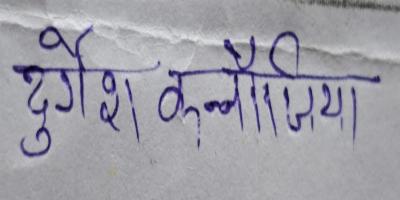 दुर्गेश कन्नौजिया